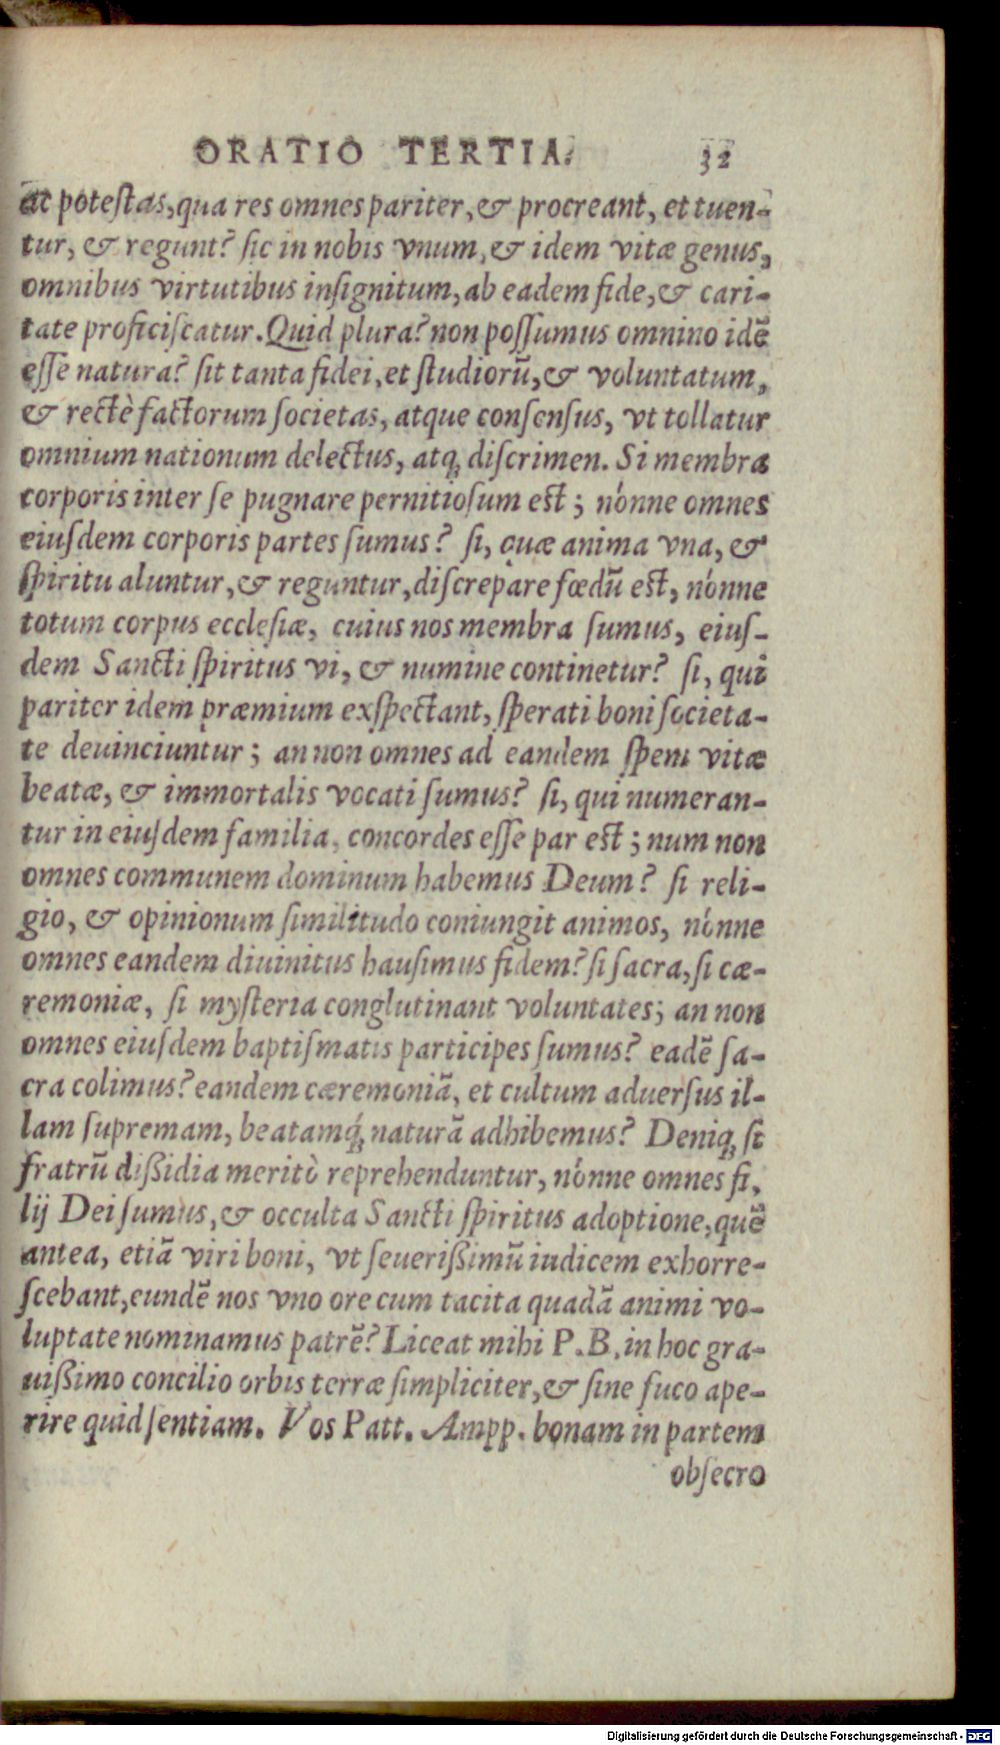 ORATIO TERTIA. 32
ac potestas, qua res omnes pariter, & procreant, et tuen-
tur, & regunt? sic in nobis vnum, & idem vitæ genus,
omnibus virtutibus insignitum, ab eadem fide, & cari-
tate proficiscatur. Quid plura? non possumus omnino idẽ
esse natura? sit tanta fidei, et studiorũ, & voluntatum,
& rectè factorum societas, atque consensus, vt tollatur
omnium nationum delectus, atq; discrimen. Si membra
corporis inter se pugnare pernitiosum est; nónne omnes
eiusdem corporis partes sumus? si, quæ anima vna, &
spiritu aluntur, & reguntur, discrepare fœdũ est, nónne
totum corpus ecclesiæ, cuius nos membra sumus, eius-
dem Sancti spiritus vi, & numine continetur? si, qui
pariter idem præmium exspectant, sperati boni societa-
te deuinciuntur; an non omnes ad eandem spem vitæ
beatæ, & immortalis vocati sumus? si, qui numeran-
tur in eiusdem familia, concordes esse par est; num non
omnes communem dominum habemus Deum? si reli-
gio, & opinionum similitudo coniungit animos, nónne
omnes eandem diuinitus hausimus fidem? si sacra, si cæ-
remoniæ, si mysteria conglutinant voluntates; an non
omnes eiusdem baptismatis participes sumus? eadẽ sa-
cra colimus? eandem cæremoniã, et cultum aduersus il-
lam supremam, beatamq́; naturã adhibemus? Deniq; si
fratrũ dißidia meritò reprehenduntur, nónne omnes fi,
lij Dei sumus, & occulta Sancti spiritus adoptione, quẽ
antea, etiã viri boni, vt seuerißimũ iudicem exhorre-
scebant, eundẽ nos vno ore cum tacita quadã animi vo-
luptate nominamus patrẽ? Liceat mihi P. B. in hoc gra-
uißimo concilio orbis terræ simpliciter, & sine fuco ape-
rire quid sentiam. Vos Patt. Ampp. bonam in partem
obsecro
Digitalisierung gefördert durch die Deutsche Forschungsgemeinschaft - DFG